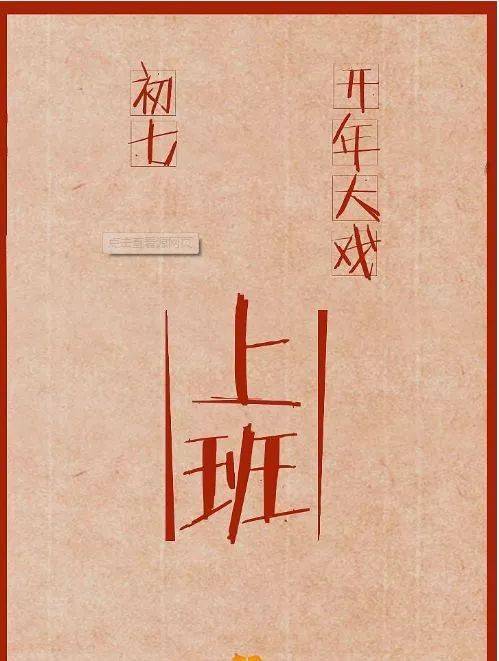 开年大戏
初七
点击查看源网页
上班